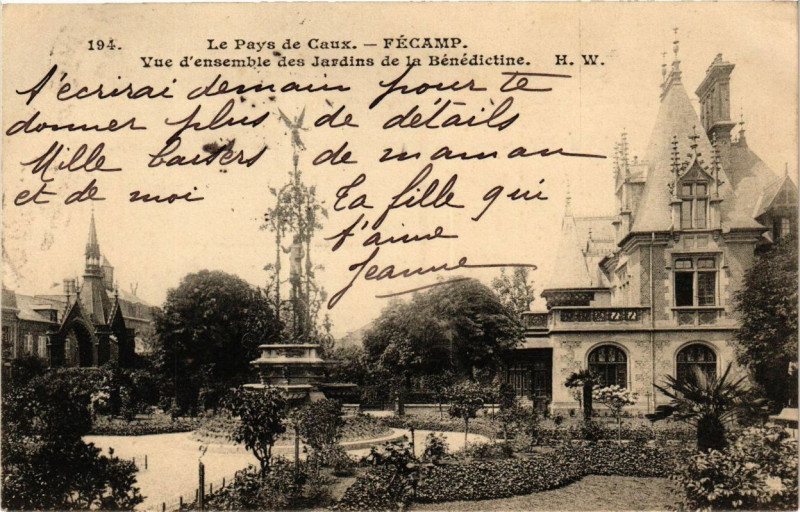 194. Le Pays de Caux. — FÉCAMP.
Vue d'ensemble des Jardins de la Bénédictine. H. W.
t'écrirai demain pour te
donner plus de détails
Mille baisers de maman
et de moi Ta fille qui
t'aime
Jeanne